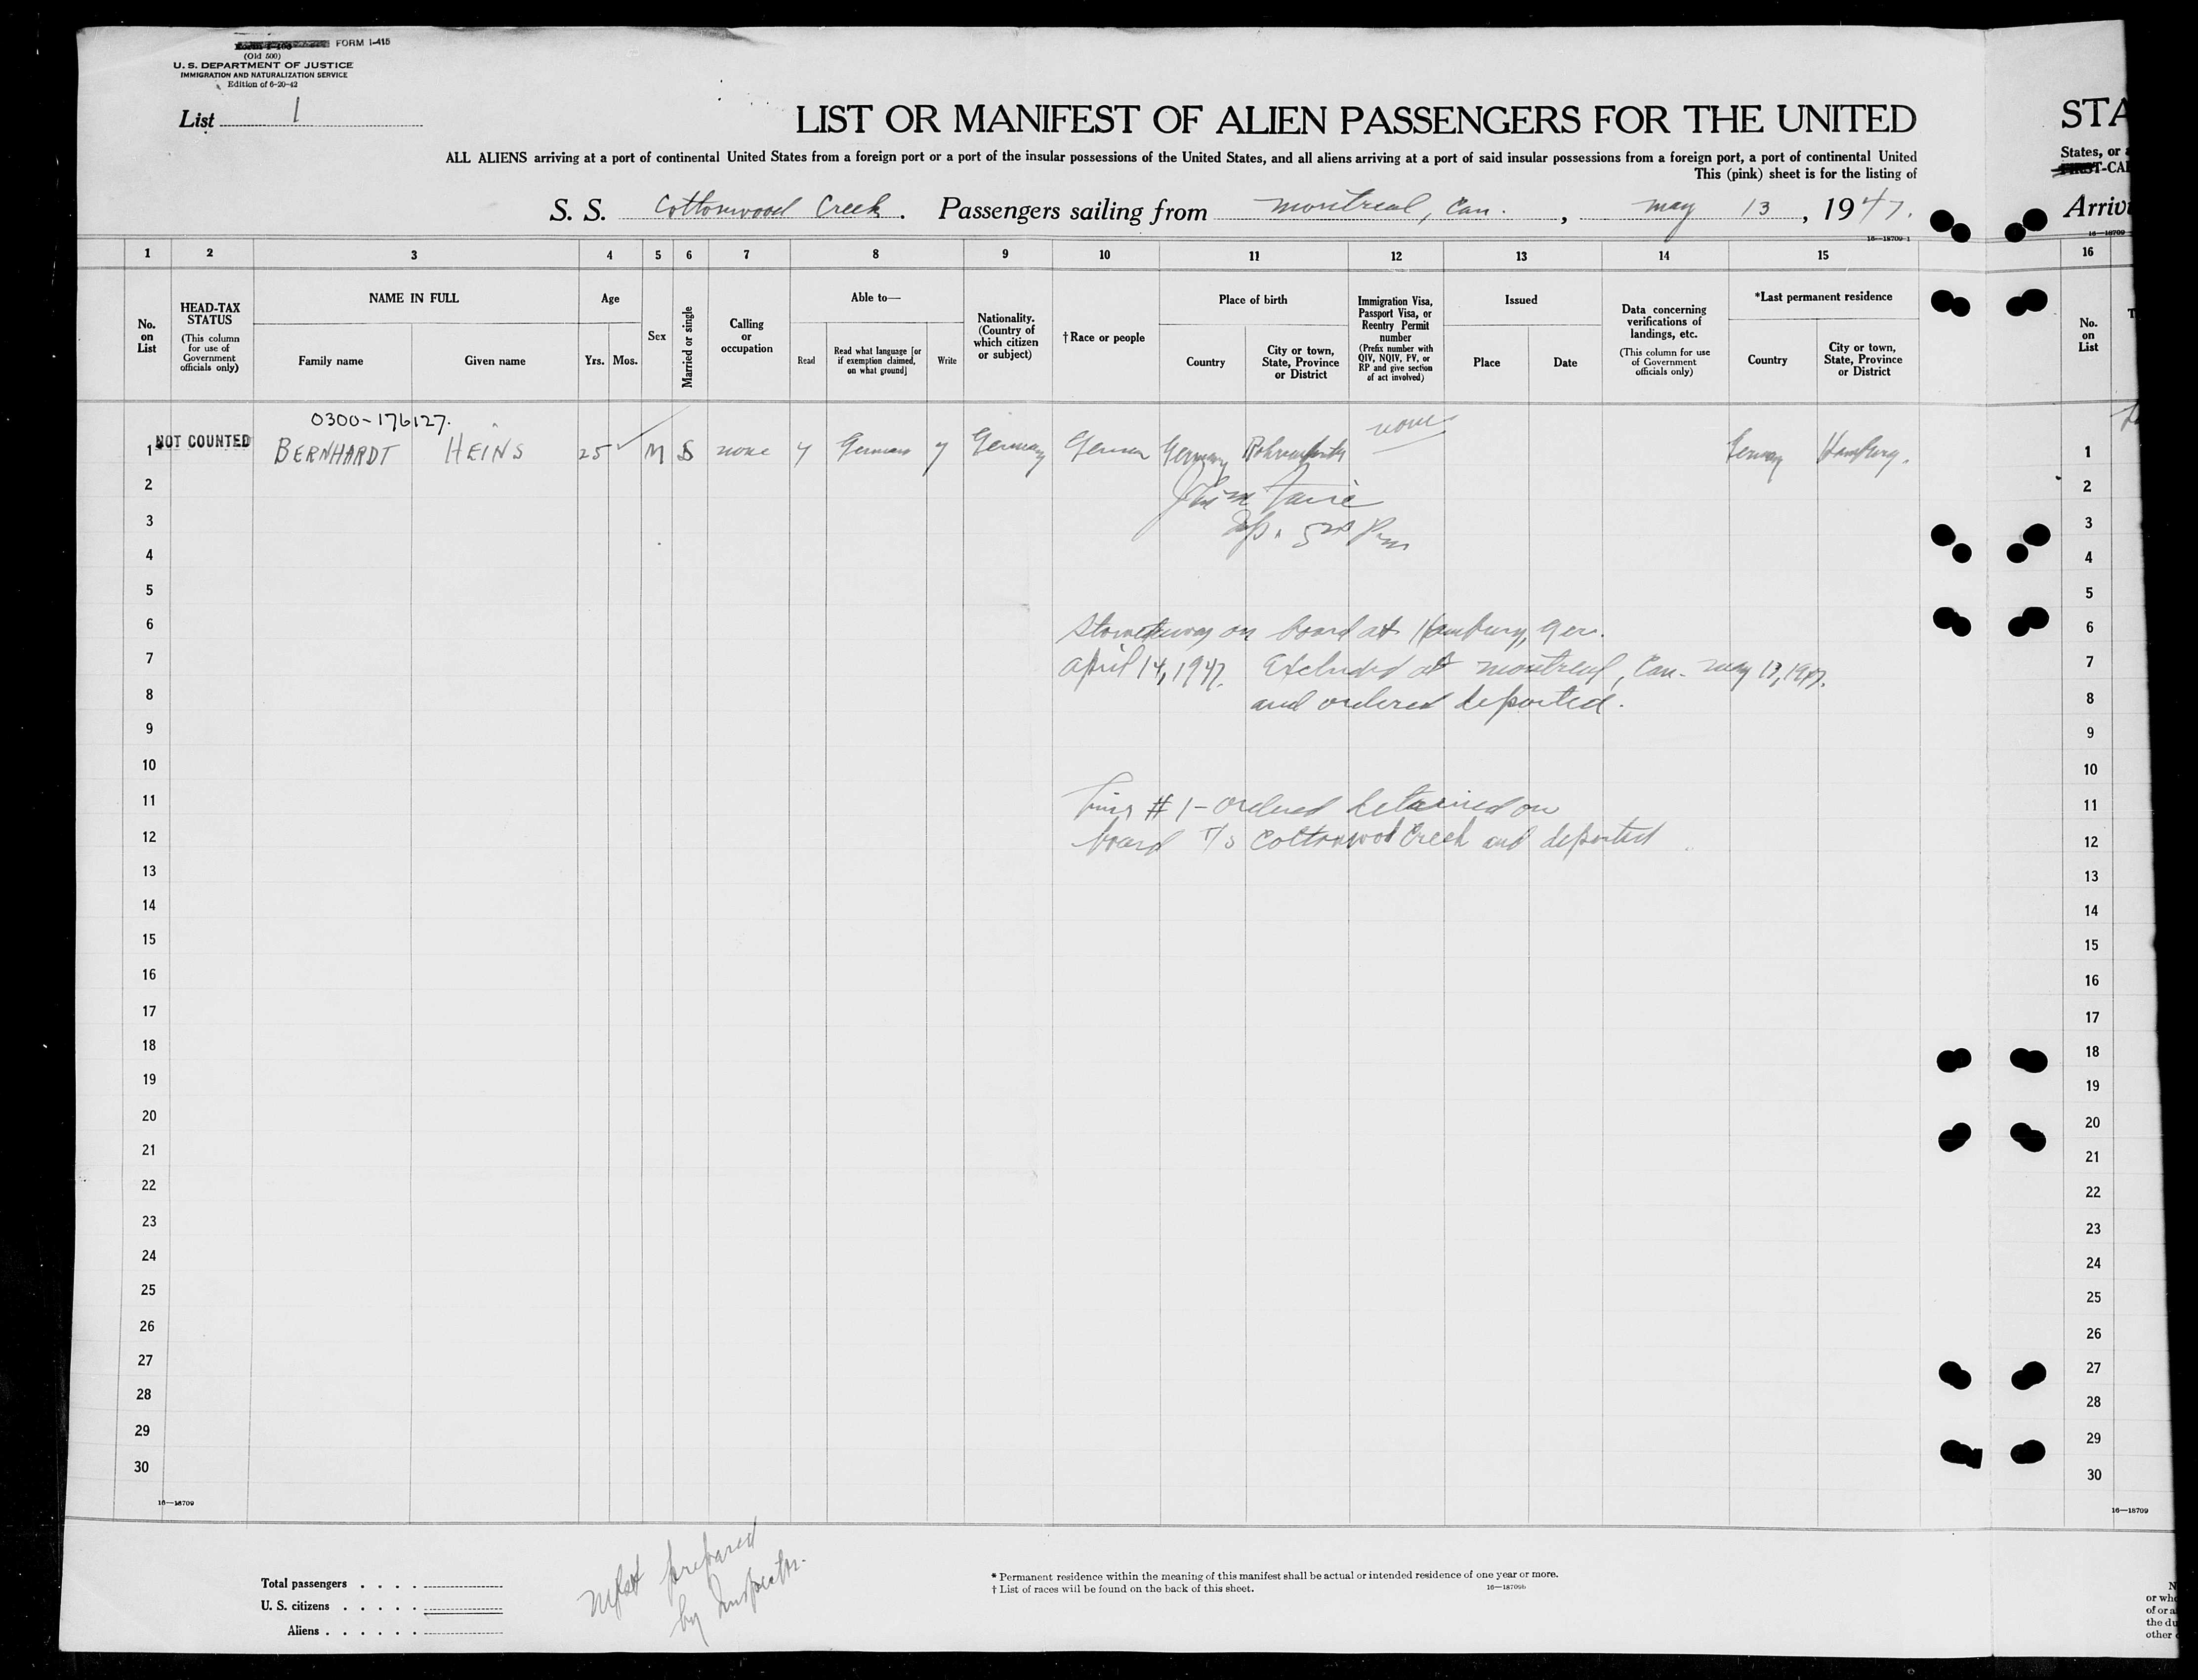 FORM I-415
(Old 500)
U. S. DEPARTMENT OF JUSTICE
IMMIGRATION AND NATURALIZATION SERVICE
Edition of 6-20-42
List 1
LIST OR MANIFEST OF ALIEN PASSENGERS FOR THE UNITED
ALL ALIENS arriving at a port of continental United States from a foreign port or a port of the insular possessions of the United States, and all aliens arriving at a port of said insular possessions from a foreign port, a port of continental United
This (pink) sheet is for the listing of
S. S. Cottonwood Creek. Passengers sailing from Montreal, Can., May 13, 1947.
16—18709-1
1 2 3 4 5 6 7 8 9 10 11 12 13 14 15
No. on List
HEAD-TAX STATUS
(This column for use of Government officials only)
NAME IN FULL
Family name
Given name
Age
Yrs. Mos.
Sex
Married or single
Calling or occupation
Able to—
Read
Read what language [or if exemption claimed, on what ground]
Write
Nationality. (Country of which citizen or subject)
†Race or people
Place of birth
Country
City or town, State, Province or District
Immigration Visa, Passport Visa, or Reentry Permit number
(Prefix number with QIV, NQIV, PV, or RP and give section of act involved)
Issued
Place
Date
Data concerning verifications of landings, etc.
(This column for use of Government officials only)
*Last permanent residence
Country
City or town, State, Province or District
0300-176127.
1 NOT COUNTED BERNHARDT HEINS 25 M S none y German y Germany German Germany none Germany Hamburg.
2
3
4
5
6 Stowaway on board at Hamburg, Ger.
7 April 14, 1947. Excluded at Montreal, Can. May 13, 1947.
8 and ordered deported.
9
10
11 # 1 - ordered detained on
12 board T/S Cottonwood Creek and deported
13
14
15
16
17
18
19
20
21
22
23
24
25
26
27
28
29
30
16—18709
Total passengers . . . .
U. S. citizens . . . . .
Aliens . . . . . .
prepared
by Inspector.
* Permanent residence within the meaning of this manifest shall be actual or intended residence of one year or more.
† List of races will be found on the back of this sheet.
16—18709b
STA
States, or a
T-CA
Arriv
16—18709
16
No. on List
1
2
3
4
5
6
7
8
9
10
11
12
13
14
15
16
17
18
19
20
21
22
23
24
25
26
27
28
29
30
16—18709
N
or who
of or a
the du
other